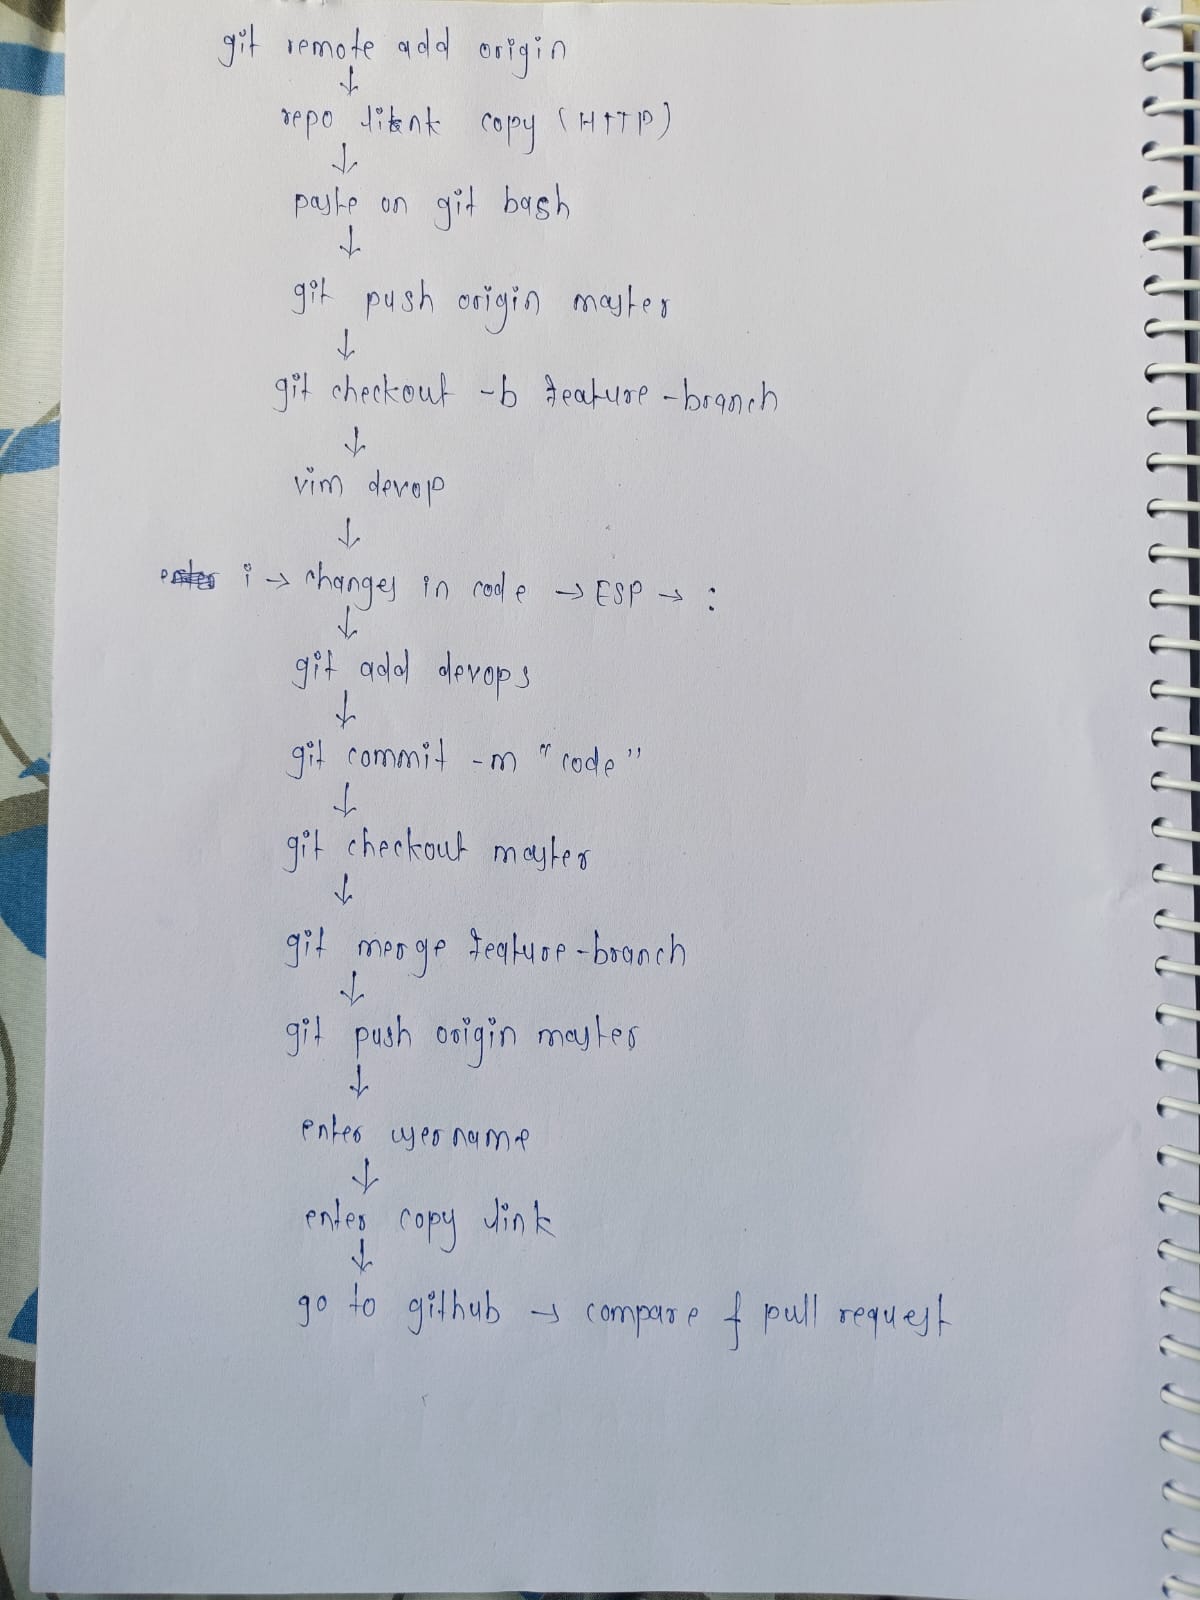 git remote add origin
↓
repo link copy (HTTP)
↓
paste on git bash
↓
git push origin master
↓
git checkout -b feature-branch
↓
vim devop
↓
i → changes in code → ESP → :
↓
git add devops
↓
git commit -m "code"
↓
git checkout master
↓
git merge feature-branch
↓
git push origin master
↓
enter username
↓
enter copy link
↓
go to github → compare & pull request